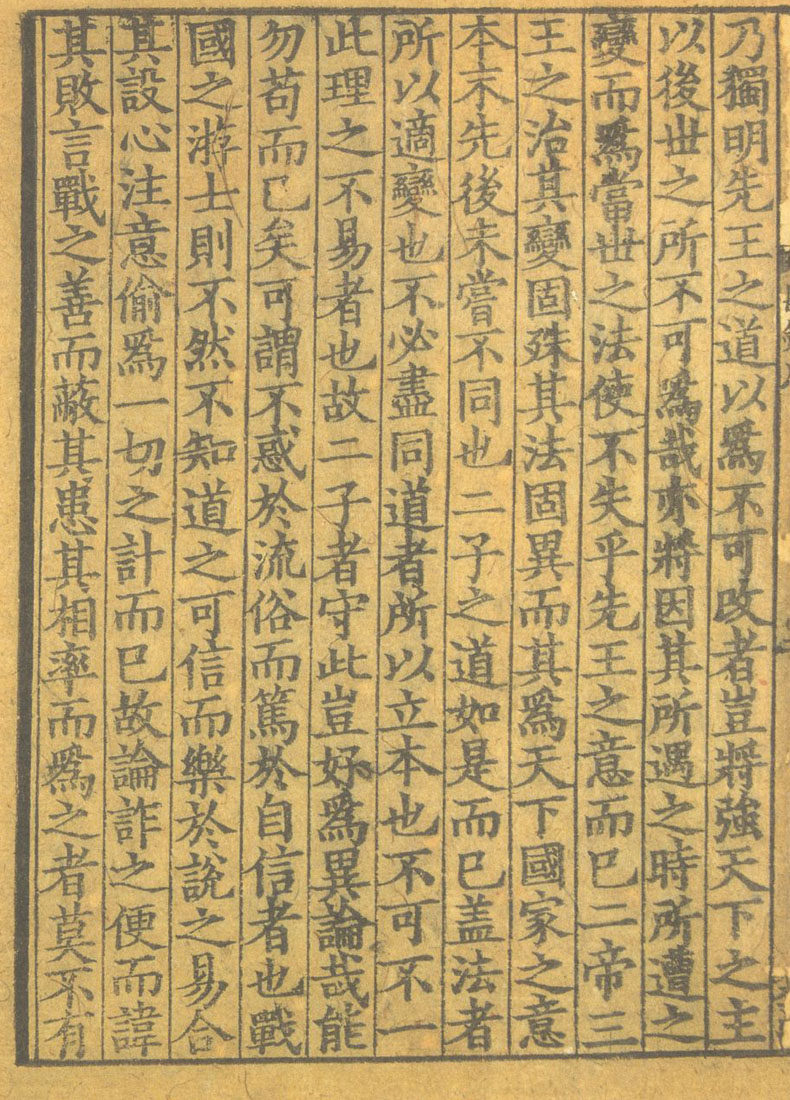 乃獨明先王之道以爲不可改者豈將強天下之主
以後世之所不可爲哉亦將因其所遇之時所遭之
變而爲當世之法使不失乎先王之意而已二帝三
王之治其變固殊其法固異而其爲天下國家之意
本末先後未嘗不同也二子之道如是而已盖法者
所以適變也不必盡同道者所以立本也不可不一
此理之不易者也故二子者守此豈好爲異論哉能
勿苟而已矣可謂不惑於流俗而篤於自信者也戰
國之游士則不然不知道之可信而樂於說之易合
其設心注意偷爲一切之計而已故論詐之便而諱
其敗言戰之善而蔽其患其相率而爲之者莫不有